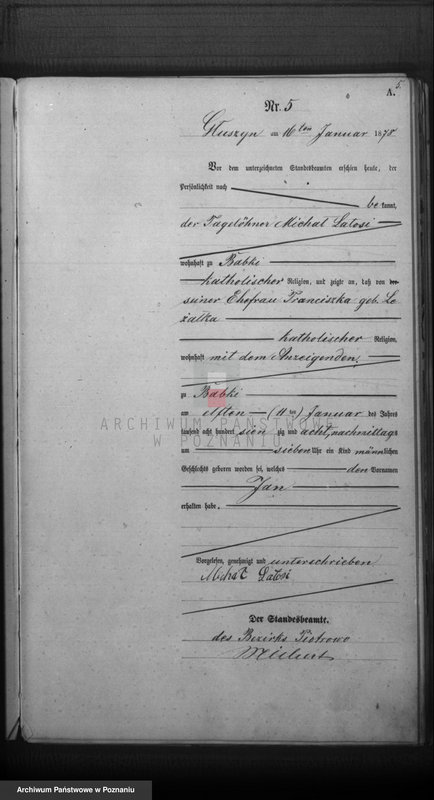 5.
A.
Nr. 5
Głuszyn am 16ten Januar 1878
Vor dem unterzeichneten Standesbeamten erschien heute, der
Persönlichkeit nach
be kannt,
der Tagelöhner Michał Latosi
wohnhaft zu Babki
katholischer Religion, und zeigte an, daß von der
seiner Ehefrau Franciszka geb. Le
żalka
katholischer Religion,
wohnhaft mit dem Anzeigenden,
zu Babki
am elften (11ten) Januar des Jahres
tausend acht hundert sieben zig und acht, nachmittags
um sieben Uhr ein Kind männlichen
Geschlechts geboren worden sei, welches den Vornamen
Jan
erhalten habe.
Vorgelesen, genehmigt und unterschrieben
Michał Latosi
Der Standesbeamte.
des Bezirks Piotrowo
ARCHIWUM PAŃSTWOWE
W POZNANIU
Archiwum Państwowe w Poznaniu